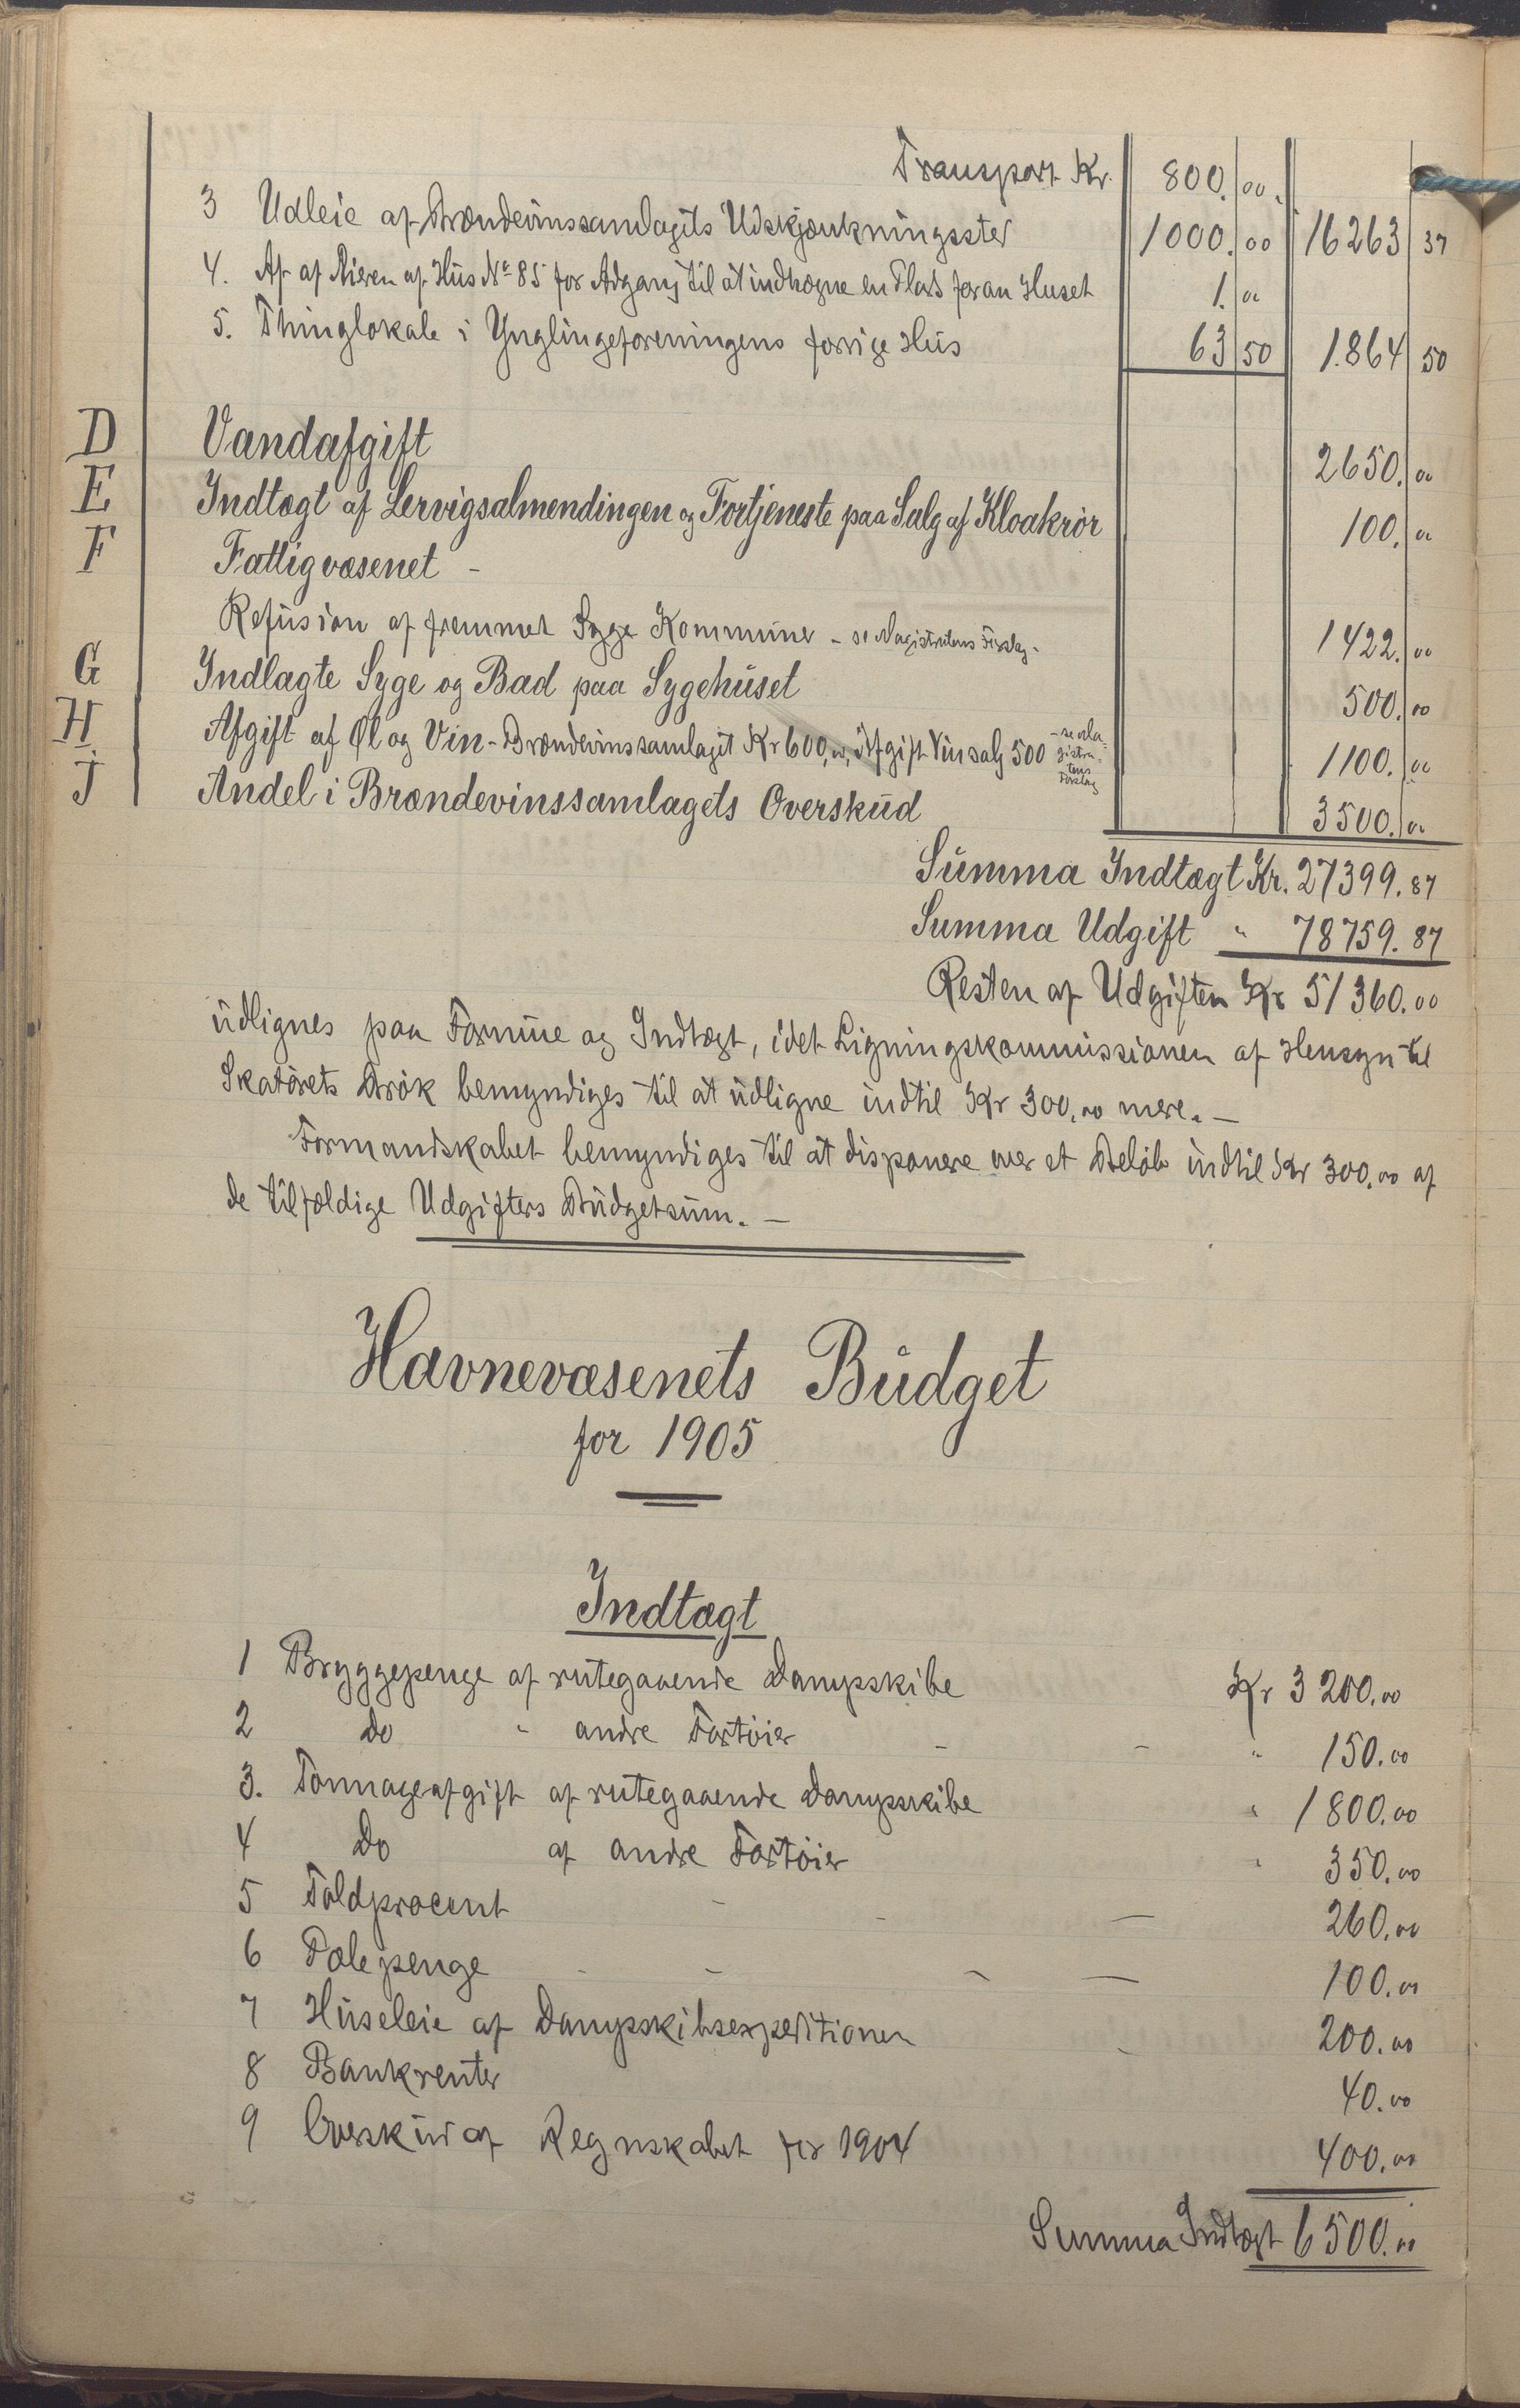 Transport Kr. 800.00.
3 Udleie af Brændevinssamlagets Udskjænkningssted 1000.00 16263 37
4. Af af Eieren af Hus No 85 for Adgang til at indhegne en Plads foran Huset 1.00
5. Thinglokale i Ynglingeforeningens forrige Hus 63 50 1.864 50
D Vandafgift 2650.00
E Indtægt af Lervigsalmendingen og Fortjeneste paa Salg af Kloakrør 100.00
F Fattigvæsenet -
Refusion af fremmed Syge Kommuner - se Magistratens Forslag - 1422.00
G Indlagte Syge og Bad paa Sygehuset 500.00
H. Afgift af Øl og Vin - Brændevinssamlaget Kr 600,00, Afgift Vinsalg 500 - se Magistratens Forslag 1100.00
J Andel i Brændevinssamlagets Overskud 3500.00
Summa Indtægt Kr. 27399.87
Summa Udgift " 78759.87
Resten af Udgiften Kr 51360.00
udlignes paa Formue og Indtægt, idet Ligningskommissionen af Hensyn til
Skatørets Brøk bemyndiges til at udligne indtil Kr 300,00 mere. —
Formandskabet bemyndiges til at disponere over et Beløb indtil Kr 300,00 af
de tilfældige Udgifters Budgetsum. —
Havnevæsenets Budget
for 1905
Indtægt
1 Bryggepenge af rutegaaende Dampskibe Kr 3200.00
2 Do " andre Fartøier - - " 150.00
3. Tonnageafgift af rutegaaende Dampskibe " 1800.00
4 Do af andre Fartøier " 350.00
5 Toldprocent - - — 260.00
6 Pælepenge - - - — 100.00
7 Huseleie af Dampskibsexpeditionen - 200.00
8 Bankrenter 40.00
9 Overskud af Regnskabet for 1904 400.00
Summa Indtægt 6500.00